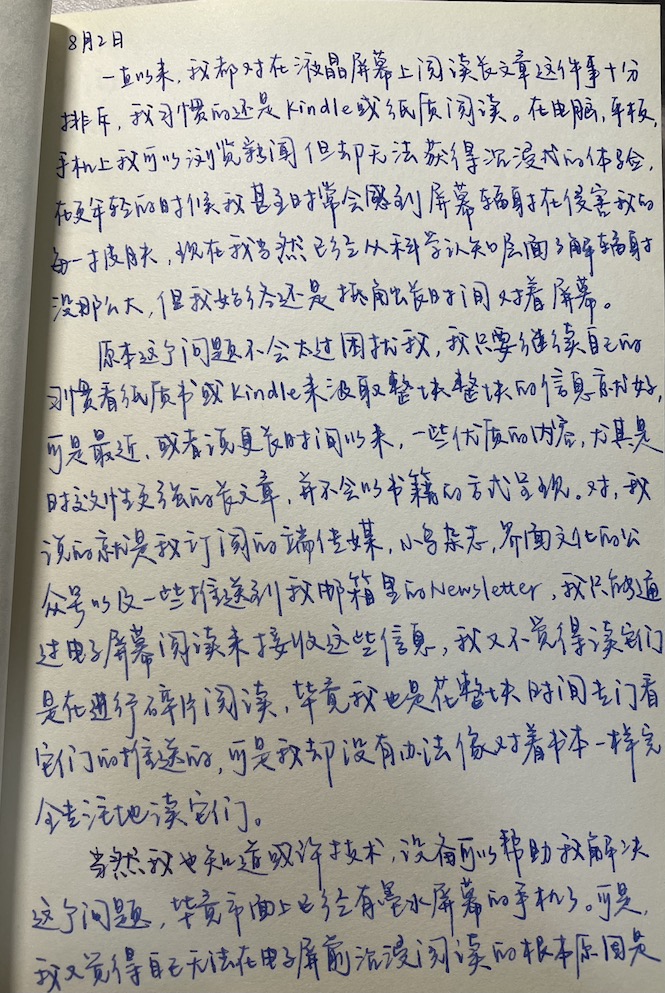 8月2日
一直以来,我都对在液晶屏幕上阅读长文章这件事十分
排斥,我习惯的还是Kindle或纸质阅读。在电脑,平板,
手机上我可以浏览新闻但却无法获得沉浸式的体验,
在更年轻的时候我甚至时常会感到屏幕辐射在侵害我的
每一寸皮肤,现在我当然已经从科学认知层面了解辐射
没那么大,但我始终还是抵触长时间对着屏幕。
原本这个问题不会太过困扰我,我只要继续自己的
习惯看纸质书或Kindle来汲取整块整块的信息就好,
可是最近,或者说更长时间以来,一些优质的内容,尤其是
时效性更强的长文章,并不会以书籍的方式呈现。对,我
说的就是我订阅的端传媒,小鸟杂志,界面文化的公
众号以及一些推送到我邮箱里的Newsletter,我只能通
过电子屏幕阅读来接收这些信息,我又不觉得读它们
是在进行碎片阅读,毕竟我也是花整块时间专门看
它们的推送的,可是我却没有办法像对着书本一样完
全专注地读它们。
当然我也知道或许技术,设备可以帮助我解决
这个问题,毕竟市面上已经有墨水屏幕的手机了。可是,
我又觉得自己无法在电子屏前沉浸阅读的根本原因是